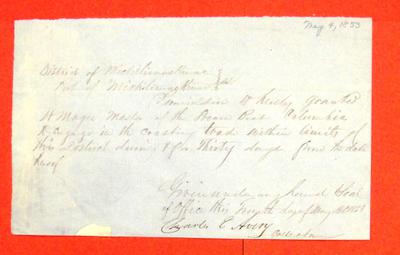 May 4, 1853
District of Michilimackinac
Port of Michilimackinac
Permission is hereby granted
Master of the Brown Boat Columbia
to engage in the coasting trade within limits of
this District during & for Thirty days from the date
hereof
Given under my hand & Seal
of Office this Fourth day of May
Charles E Avery
Collector